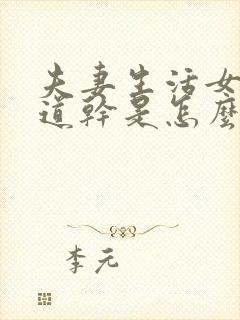 夫妻生活女
道幹是怎麼
李元